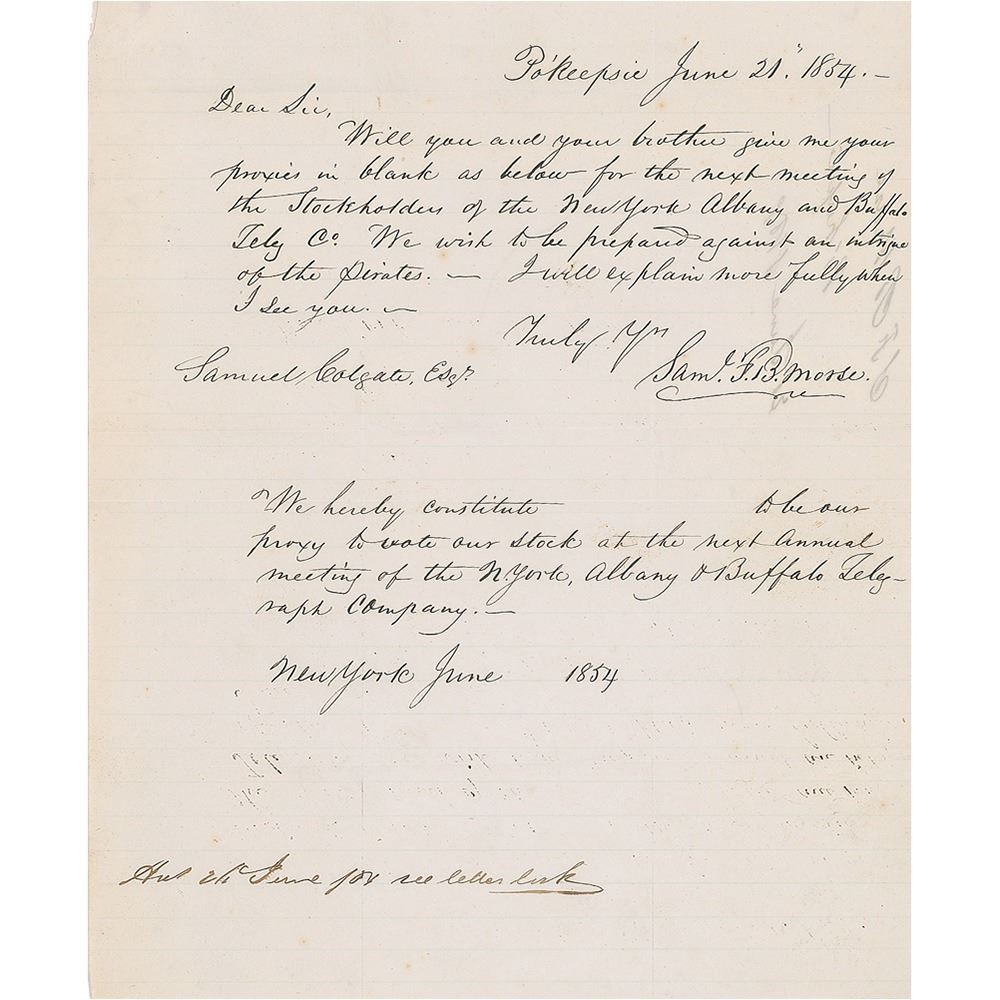 Po'keepsie June 21. 1854. –
Dear Sir,
Will you and your brother give me your
proxies in blank as below for the next meeting of
the Stockholders of the New York Albany and Buffalo
Teleg Co. We wish to be prepared against an intrigue
of the Pirates. — I will explain more fully when
I see you. —
Truly Yrs
Samuel Colgate, Esqr. Saml. F. B. Morse.
We hereby constitute to be our
proxy to vote our stock at the next Annual
meeting of the N. York, Albany & Buffalo Teleg-
raph Company. —
New York June 1854
June see letter book